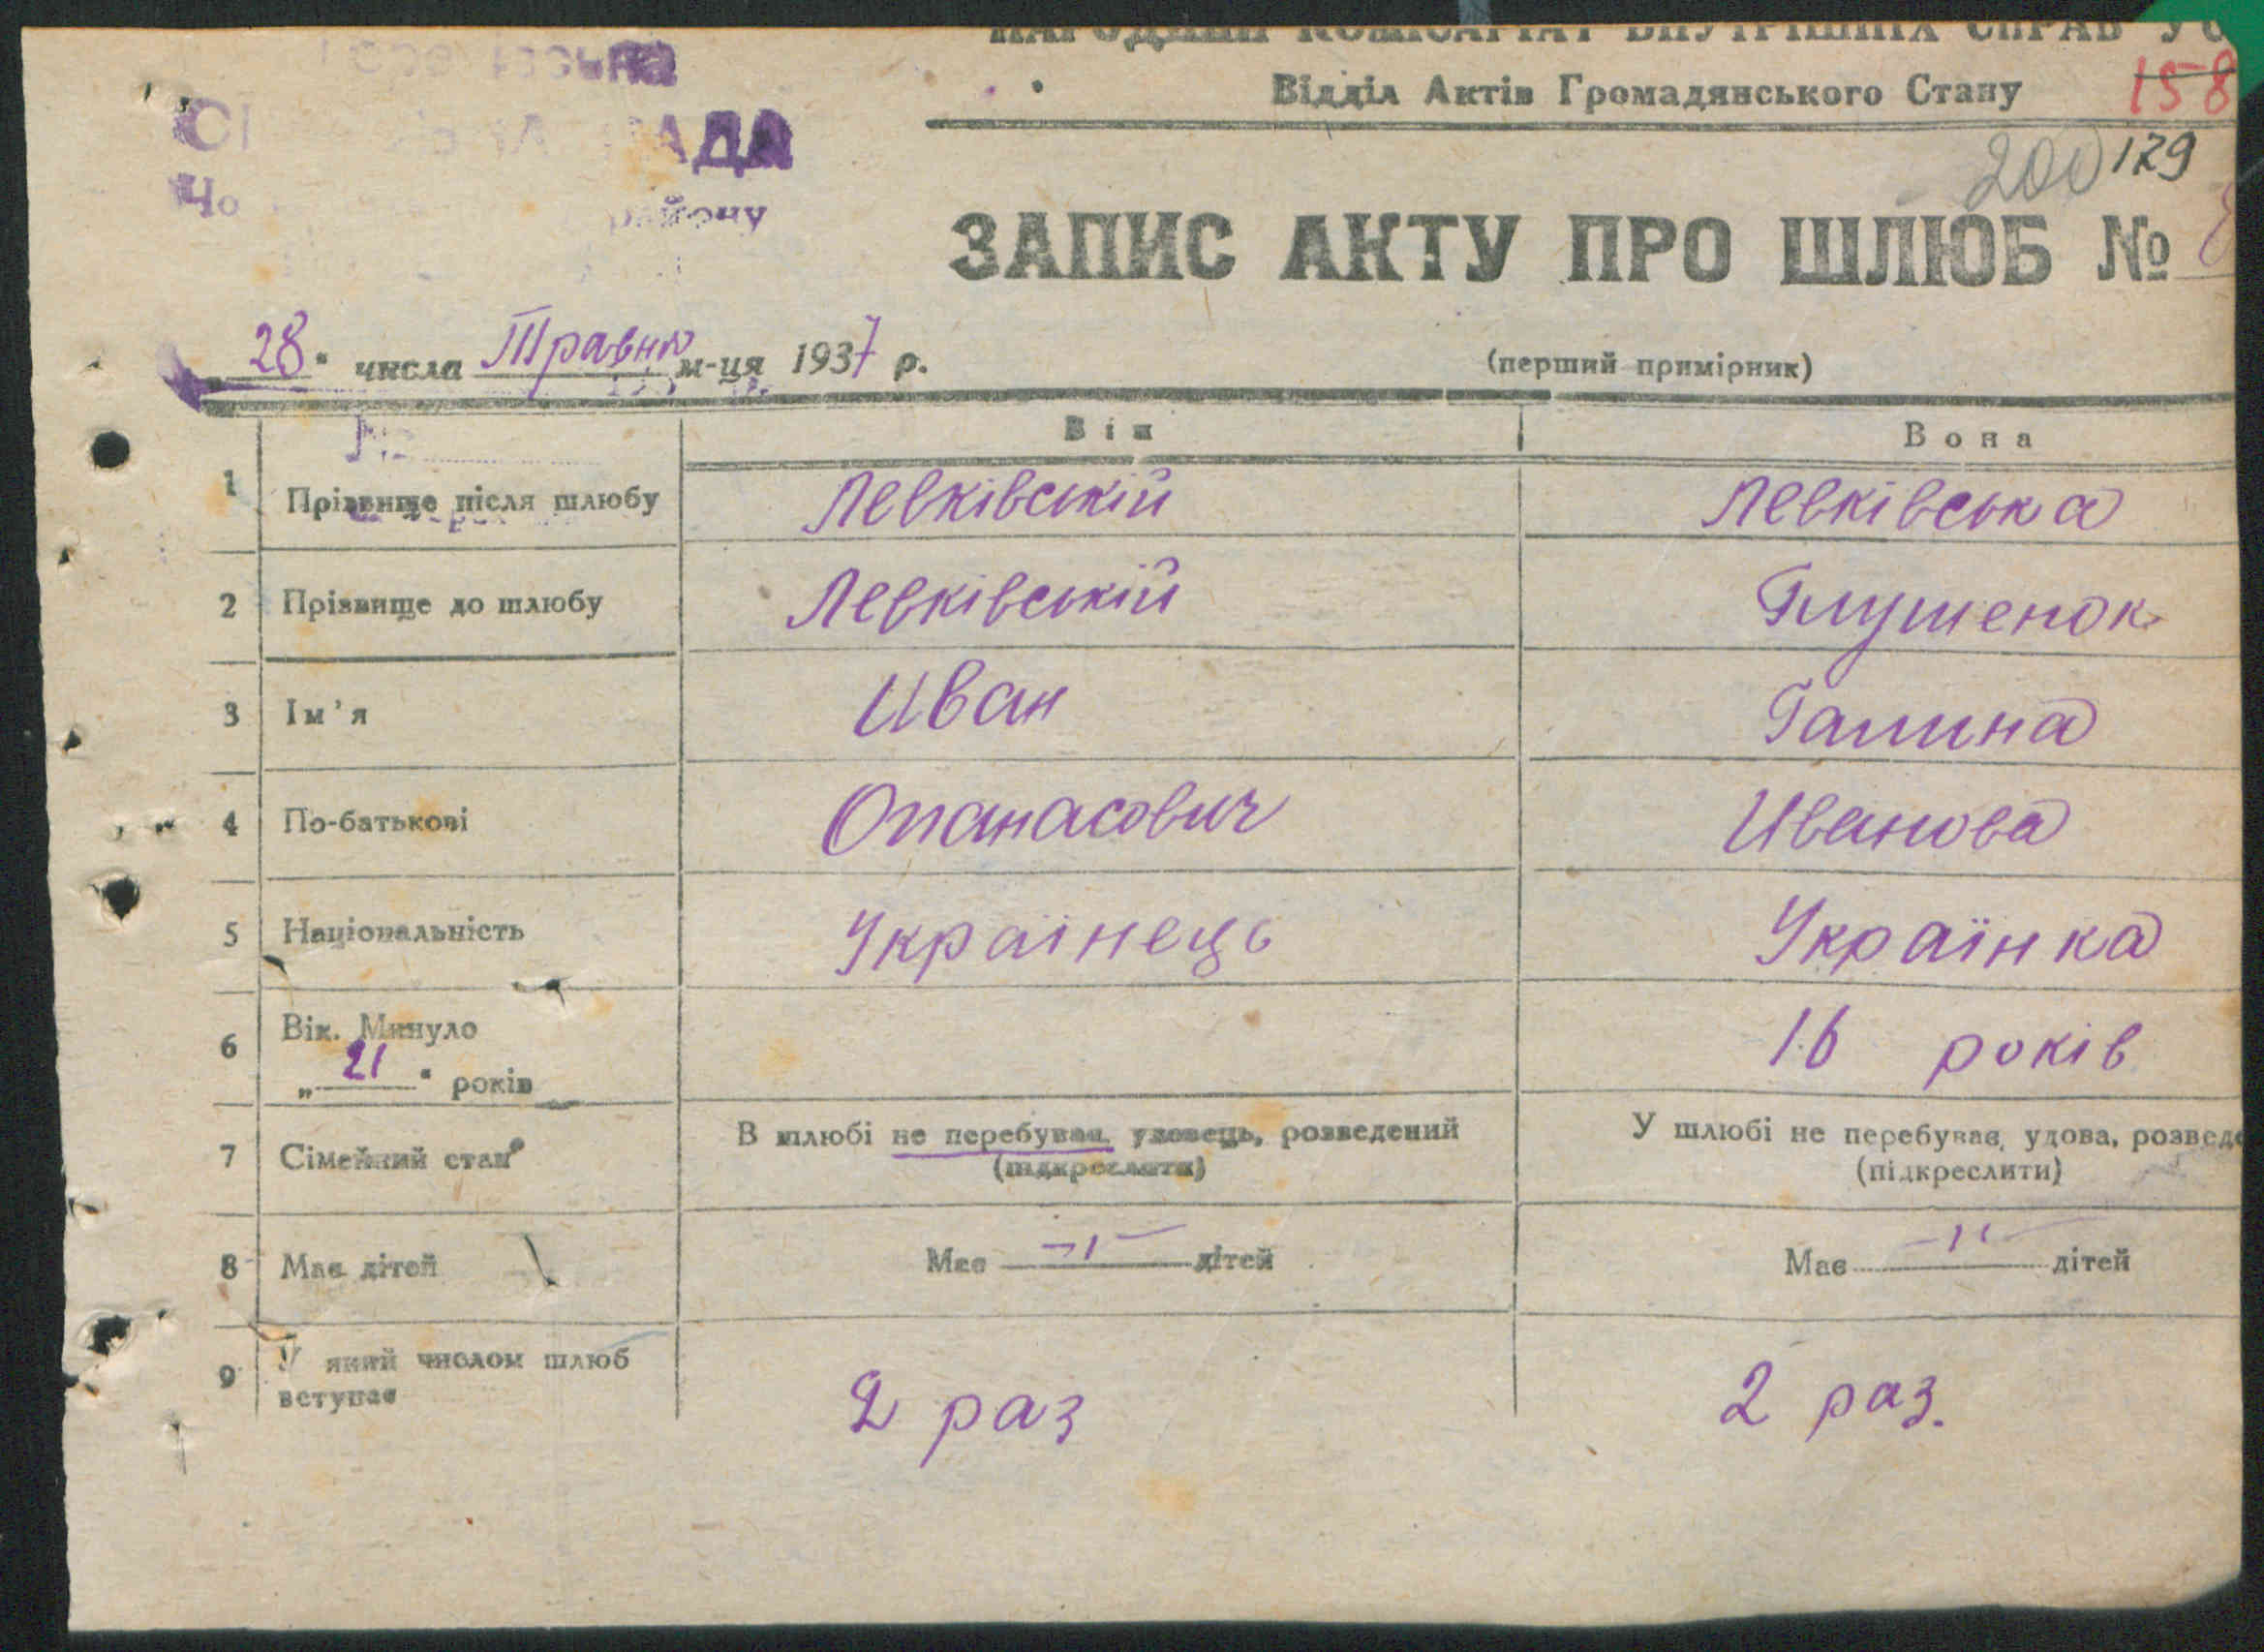 НАРОДНИЙ КОМІСАРІАТ ВНУТРІШНІХ СПРАВ УС
Відділ Актів Громадянського Стану
158
РАДА
району
200 129
ЗАПИС АКТУ ПРО ШЛЮБ №
„28“ числа Травня м-ця 1937 р.
(перший примірник)
Він Вона
1 Прізвище після шлюбу Левківській Левківська
2 Прізвище до шлюбу Левківській Глушенок
3 Ім'я Иван Галина
4 По-батькові Опанасович Иванова
5 Національність Українець Українка
6 Вік. Минуло „21“ років 16 років
7 Сімейний стан В шлюбі не перебував, удовець, розведений (підкреслити) У шлюбі не перебував, удова, розведе (підкреслити)
8 Має дітей Має —"— дітей Має —"— дітей
9 У який числом шлюб вступає 2 раз 2 раз.